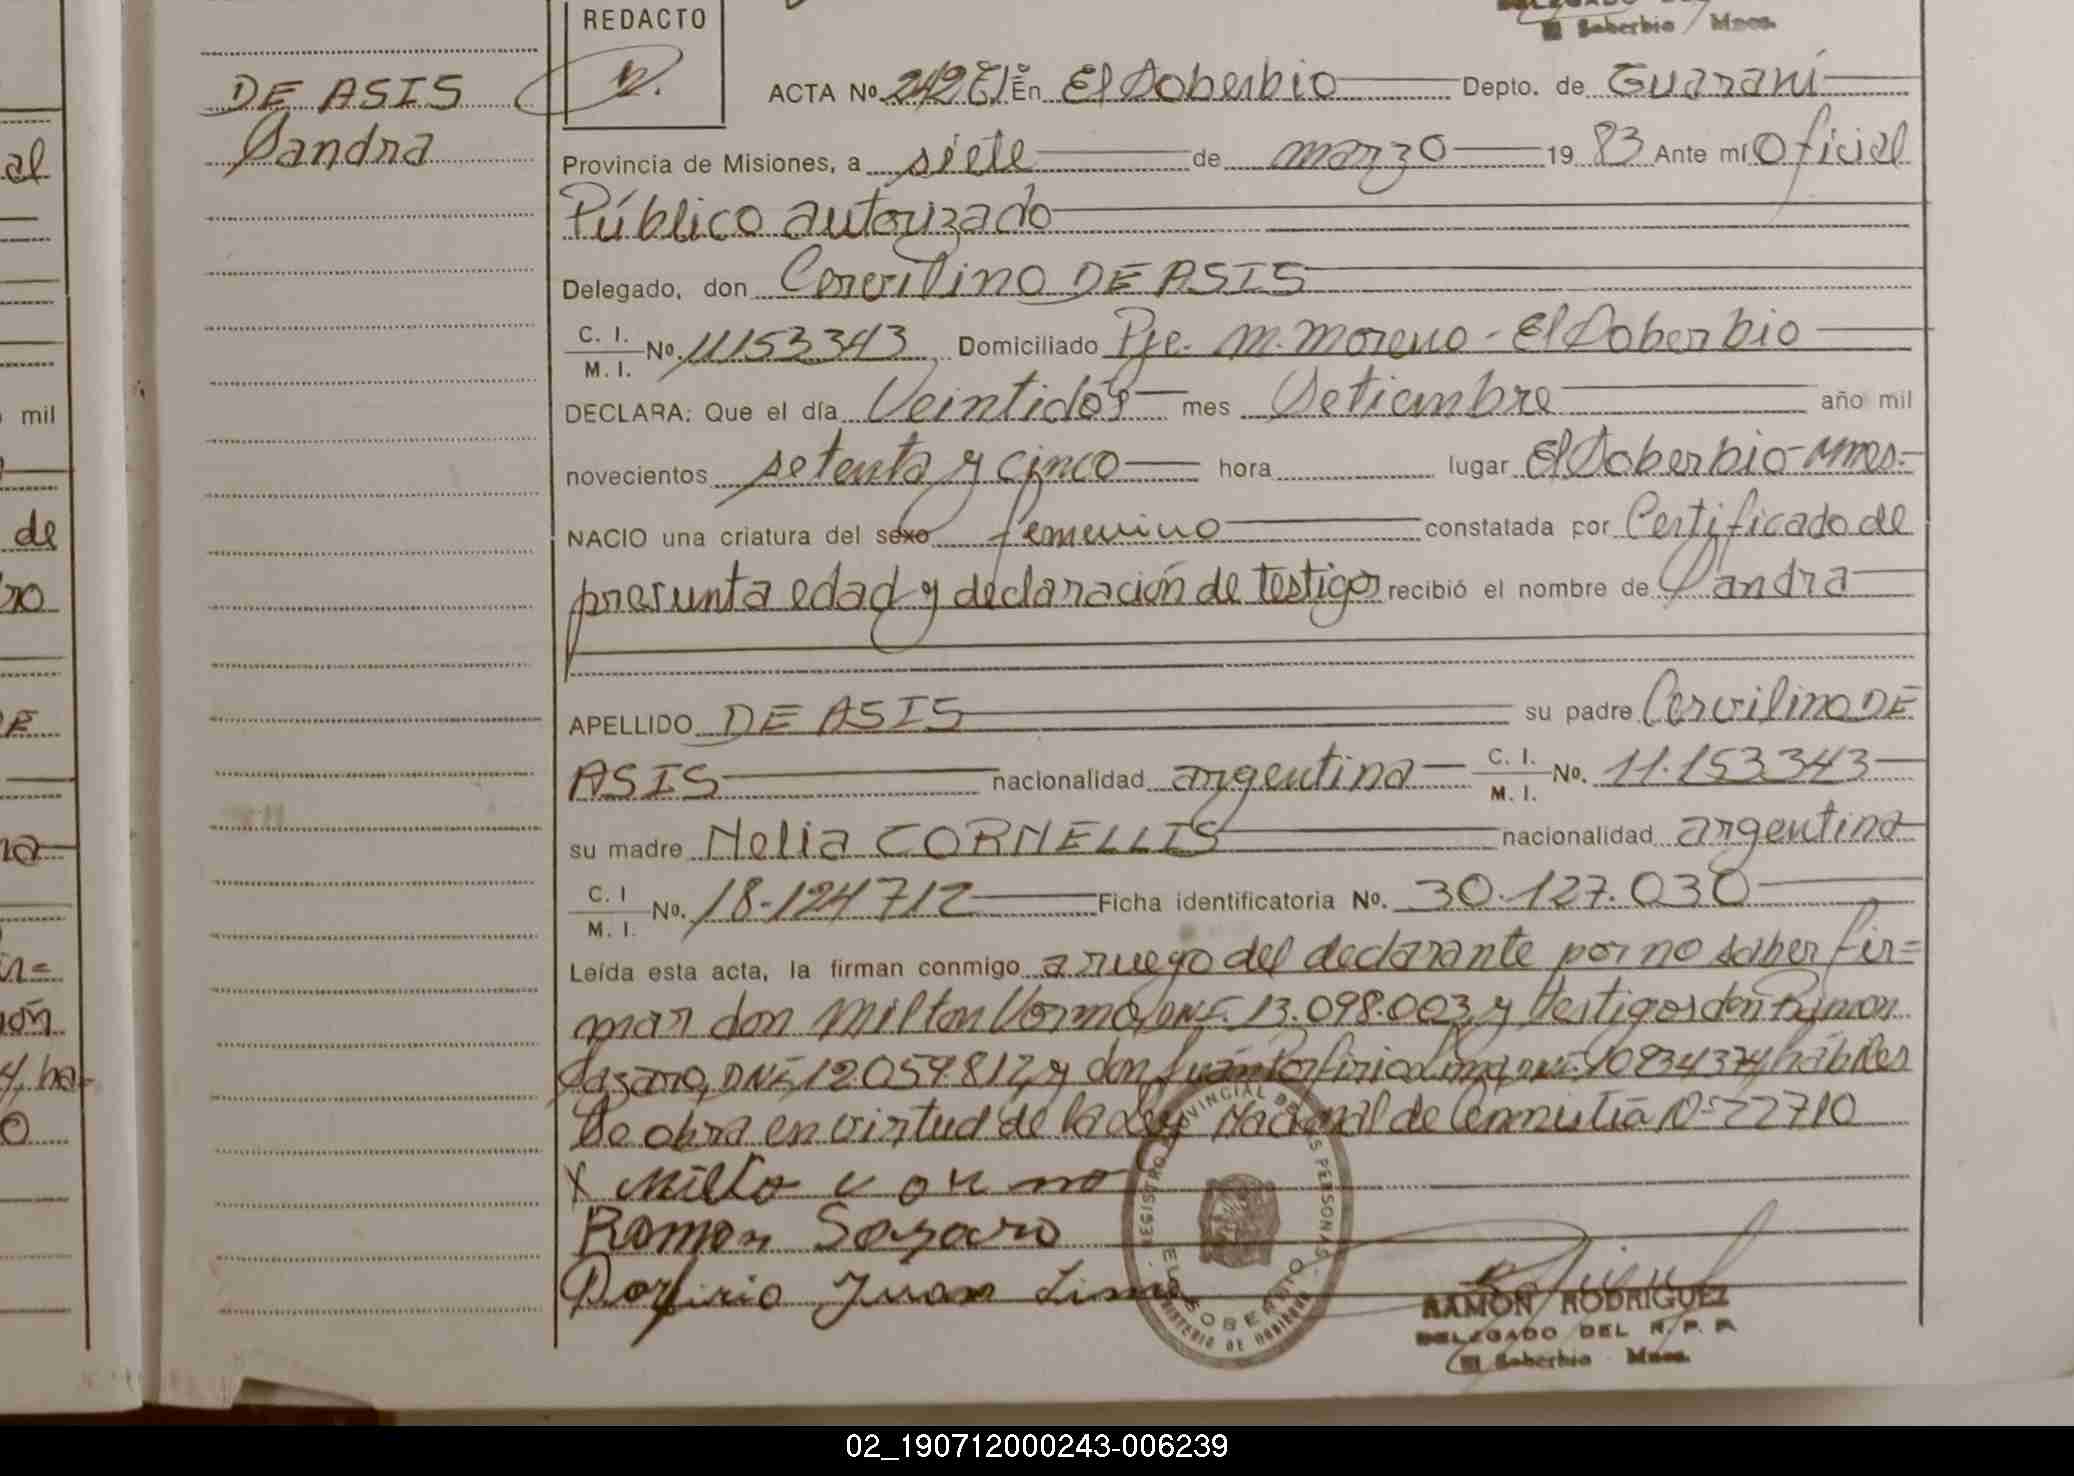 REDACTO
El Soberbio Mnes.
DE ASIS
Sandra
ACTA No 242 En El Soberbio Depto. de Guaraní
Provincia de Misiones, a siete de marzo 19 83 Ante mí Oficial
Público autorizado
Delegado, don Cervilino DE ASIS
C. I.
M. I. No. 11153343 Domiciliado Pje. M. Moreno - El Soberbio
DECLARA: Que el día Veintidós mes Setiembre año mil
novecientos setenta y cinco hora lugar El Soberbio-Mnes.-
NACIO una criatura del sexo femenino constatada por Certificado de
presunta edad y declaración de testigos recibió el nombre de Sandra
APELLIDO DE ASIS su padre Cervilino DE
ASIS nacionalidad argentina C. I.
M. I. No. 11.153.343
su madre Nelia CORNELLIS nacionalidad argentina
C. I
M. I. No. 18.124712 Ficha identificatoria No. 30.127.030
Leída esta acta, la firman conmigo a ruego del declarante por no saber fir=
mar don Milton Vorma, DNI. 13.098.003 y testigos don Ramon
DNI. 12.059.812, y don Juan Porfirio Lima, DNI. hábiles
Se obra en virtud de la Ley Nacional de Nº 22710
x Milto
Ramon
Porfirio Juan Lima
REGISTRO PROVINCIAL DE LAS PERSONAS
EL SOBERBIO
MINISTERIO DE GOBIERNO
RAMON RODRIGUEZ
DELEGADO DEL R. P. P.
El Soberbio - Mnes.
al
mil
de
ro
DE
na
ón
ha-
02_190712000243-006239